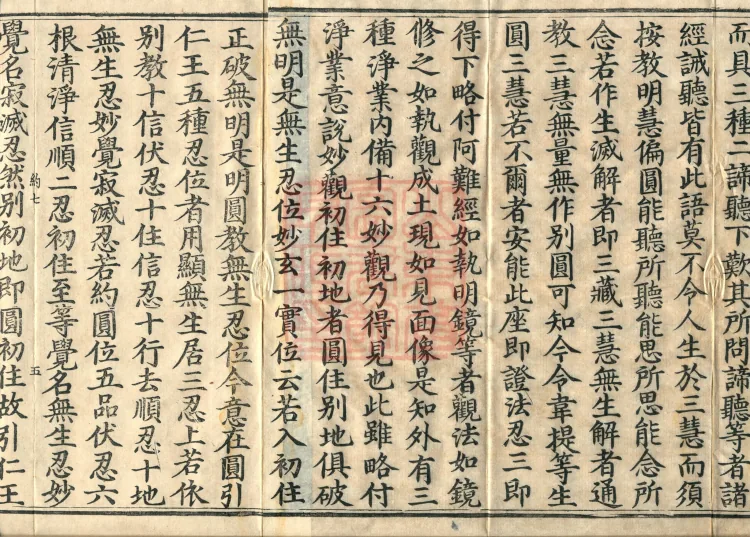 而具三種二諦聽下歎其所問諦聽等者諸
經誡聽皆有此語莫不令人生於三慧而須
按教明慧偏圓能聽所聽能思所思能念所
念若作生滅解者即三藏三慧無生解者通
教三慧無量無作別圓可知今令韋提等生
圓三慧若不爾者安能此座即證法忍三即
得下略付阿難經如執明鏡等者觀法如鏡
修之如執觀成土現如見面像是知外有三
種淨業內備十六妙觀乃得見也此雖略付
淨業意說妙觀初住初地者圓住別地俱破
無明是無生忍位妙玄一實位云若入初住
正破無明是明圓教無生忍位今意在圓引
仁王五種忍位者用顯無生居三忍上若依
別教十信伏忍十住信忍十行去順忍十地
無生忍妙覺寂滅忍若約圓位五品伏忍六
根清淨信順二忍初住至等覺名無生忍妙
約七
五
覺名寂滅忍然別初地即圓初住故引仁王